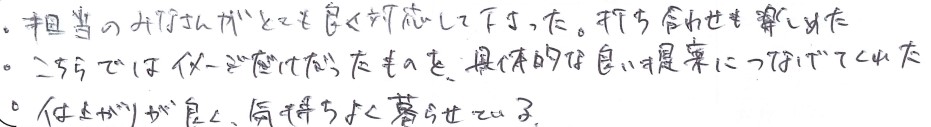 ・担当のみなさんがとても良く対応して下さった。打ち合わせも楽しめた
・こちらではイメージだけだったものを、具体的な良い提案につなげてくれた
・仕上がりが良く、気持ちよく暮らせている。